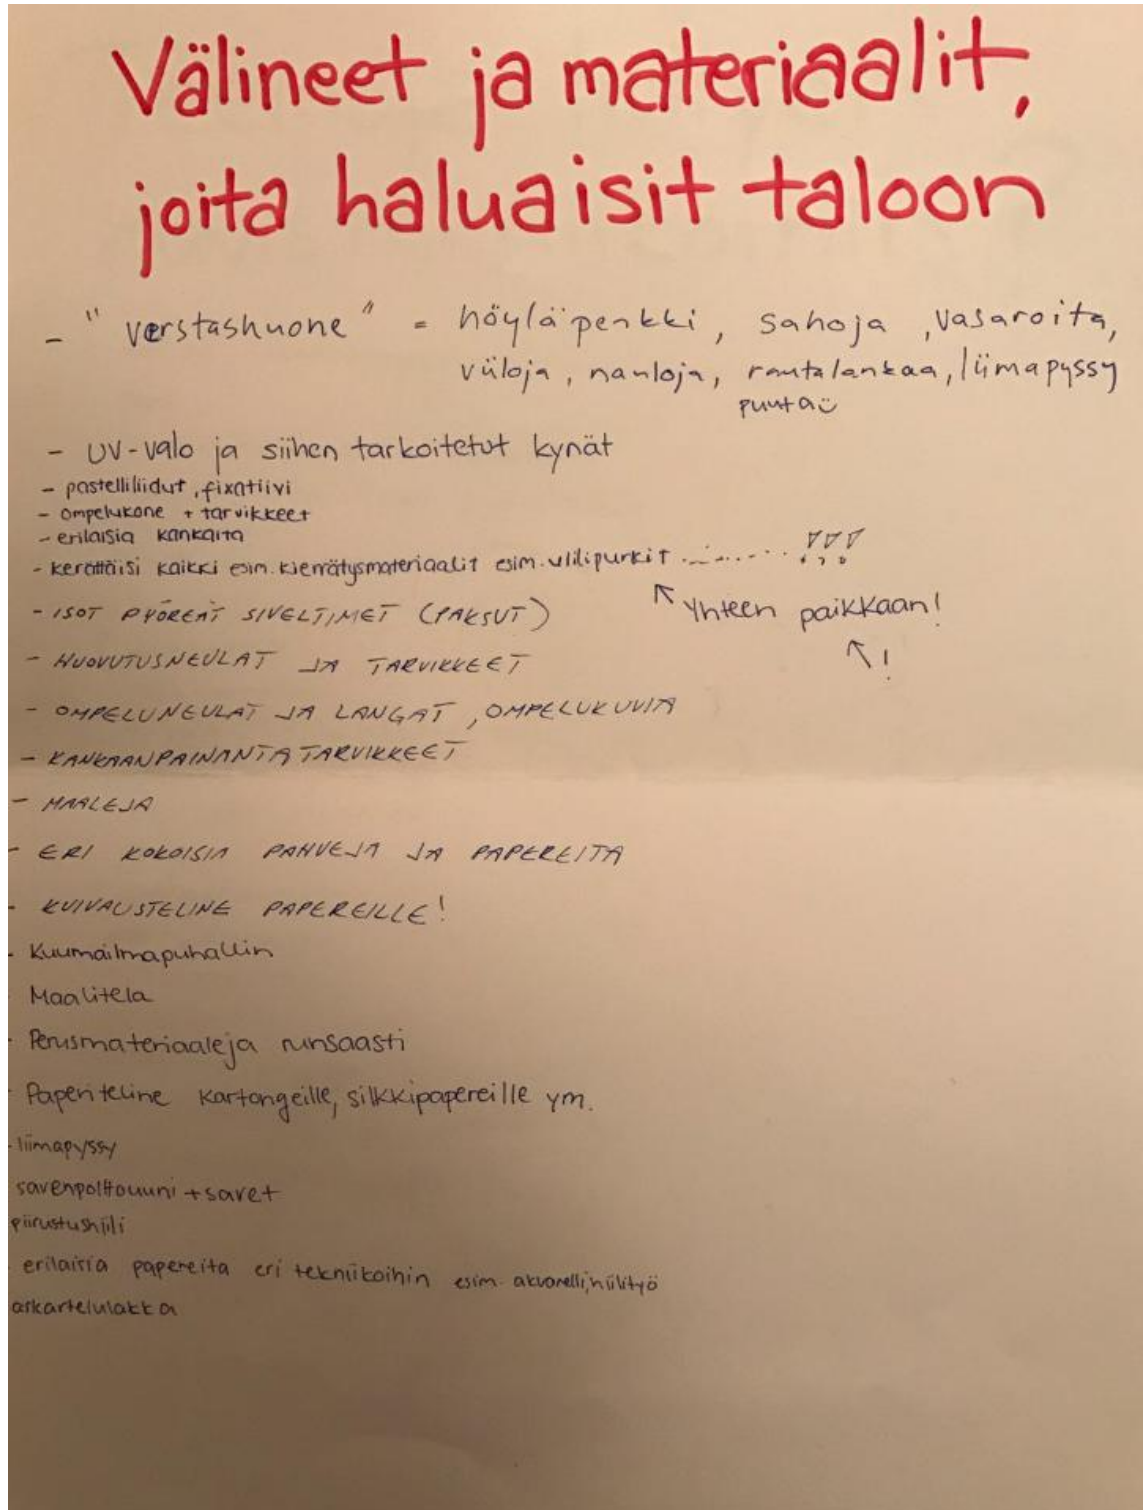 Välineet ja materiaalit,
joita haluaisit taloon
- "verstashuone" = höyläpenkki, sahoja, vasaroita,
viiloja, nauloja, rautalankaa, liimapyssy
puuta
- UV-valo ja siihen tarkoitetut kynät
- pastelliliidut, fixatiivi
- ompelukone + tarvikkeet
- erilaisia kankaita
- kerättäisi kaikki esim. kierrätysmateriaalit esim. viilipurkit ........... !!!
↖ Yhteen paikkaan!
↖ !
- ISOT PYÖREÄT SIVELTIMET (PAKSUT)
- HUOVUTUSNEULAT JA TARVIKKEET
- OMPELUNEULAT JA LANGAT, OMPELUKUVIA
- KANKAANPAINANTATARVIKKEET
- MAALEJA
- ERI KOKOISIA PAHVEJA JA PAPEREITA
- KUIVAUSTELINE PAPEREILLE!
- Kuumailmapuhallin
- Maalitela
- Perusmateriaaleja runsaasti
- Paperiteline kartongeille, silkkipapereille ym.
- liimapyssy
savenpolttouuni + savet
piirustushiili
- erilaisia papereita eri tekniikoihin esim. akvarelli, hiilityö
askartelulakka